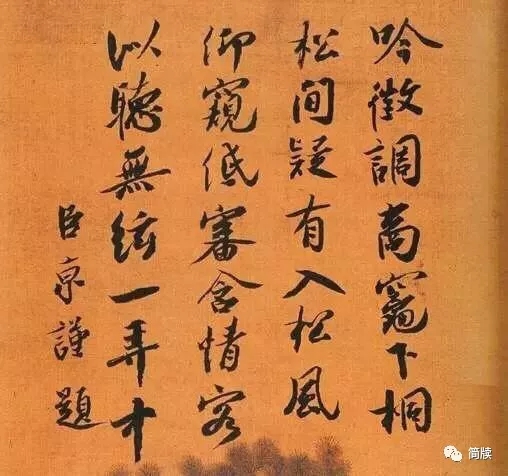 吟徵調商竈下桐
松間疑有入松風
仰窺低審含情客
似聽無絃一弄中
臣京謹題
简牍